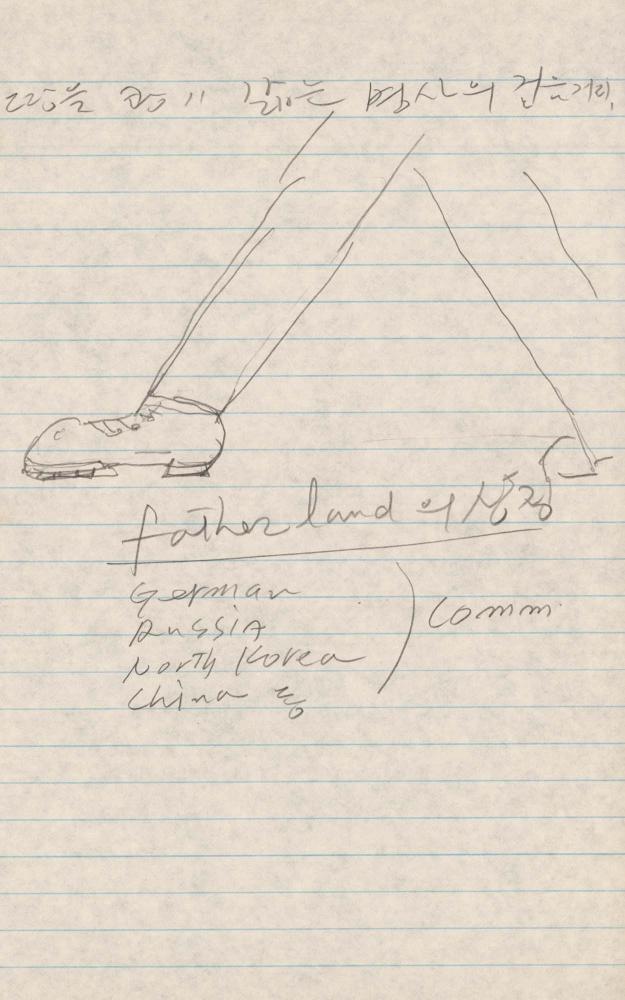 땅을 쾅〃 밟는 병사의 걸음거리.
father land 의 상징
German
Russia
North Korea
China 등
Comm.